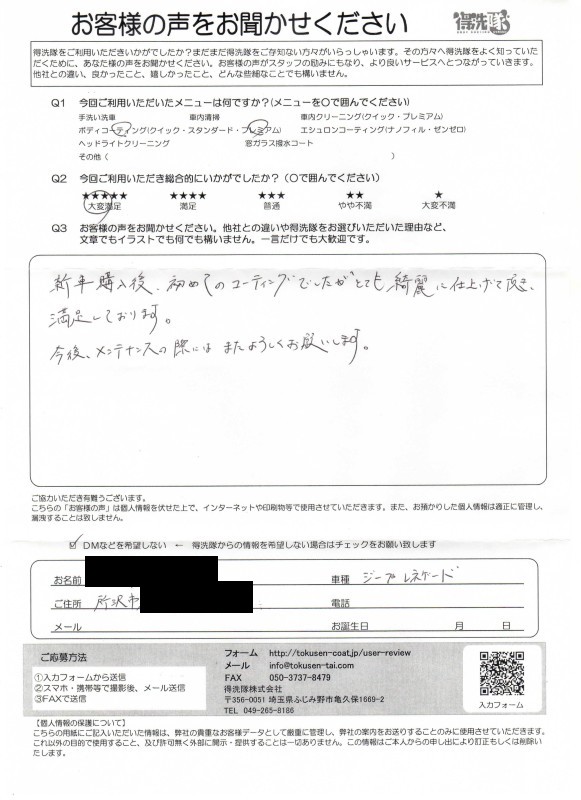 お客様の声をお聞かせください
得洗隊
得洗隊をご利用いただきいかがでしたか？まだまだ得洗隊をご存知ない方々がいらっしゃいます。その方々へ得洗隊をよく知っていた
だくために、あなた様の声をお聞かせください。お客様の声がスタッフの励みにもなり、より良いサービスへとつながっていきます。
他社との違い、良かったこと、嬉しかったこと、どんな些細なことでも構いません。
Q1 今回ご利用いただいたメニューは何ですか？(メニューを〇で囲んでください)
手洗い洗車 車内清掃 車内クリーニング(クイック・プレミアム)
ボディコーティング(クイック・スタンダード・プレミアム) エシュロンコーティング(ナノフィル・ゼンゼロ)
ヘッドライトクリーニング 窓ガラス撥水コート
その他（ ）
Q2 今回ご利用いただき総合的にいかがでしたか？（〇で囲んでください）
★★★★★ ★★★★ ★★★ ★★ ★
大変満足 満足 普通 やや不満 大変不満
Q3 お客様の声をお聞かせください。他社との違いや得洗隊をお選びいただいた理由など、
文章でもイラストでも何でも構いません。一言だけでも大歓迎です。
新車購入後、初めてのコーティングでしたがとても綺麗に仕上げて頂き、
満足しております。
今後、メンテナンスの際には またよろしくお願いします。
ご協力いただき有難うございます。
こちらの「お客様の声」は個人情報を伏せた上で、インターネットや印刷物等で使用させていただきます。また、お預かりした個人情報は適正に管理し、
漏洩することは致しません。
☑ DMなどを希望しない ← 得洗隊からの情報を希望しない場合はチェックをお願い致します
お名前 車種 ジープ レネゲード
ご住所 所沢市 電話
メール お誕生日 月 日
ご応募方法
①入力フォームから送信
②スマホ・携帯等で撮影後、メール送信
③FAXで送信
フォーム http://tokusen-coat.jp/user-review
メール info@tokusen-tai.com
FAX 050-3737-8479
得洗隊株式会社
〒356-0051 埼玉県ふじみ野市亀久保1669-2
TEL 049-265-8186
入力フォーム
【個人情報の保護について】
こちらの用紙にご記入いただいた情報は、弊社の貴重なお客様データとして厳重に管理し、弊社の案内をお送りすることのみに使用させていただきます。
これ以外の目的で使用すること、及び許可無く外部に開示・提供することは一切ありません。この情報はご本人からの申し出により訂正もしくは削除い
たします。